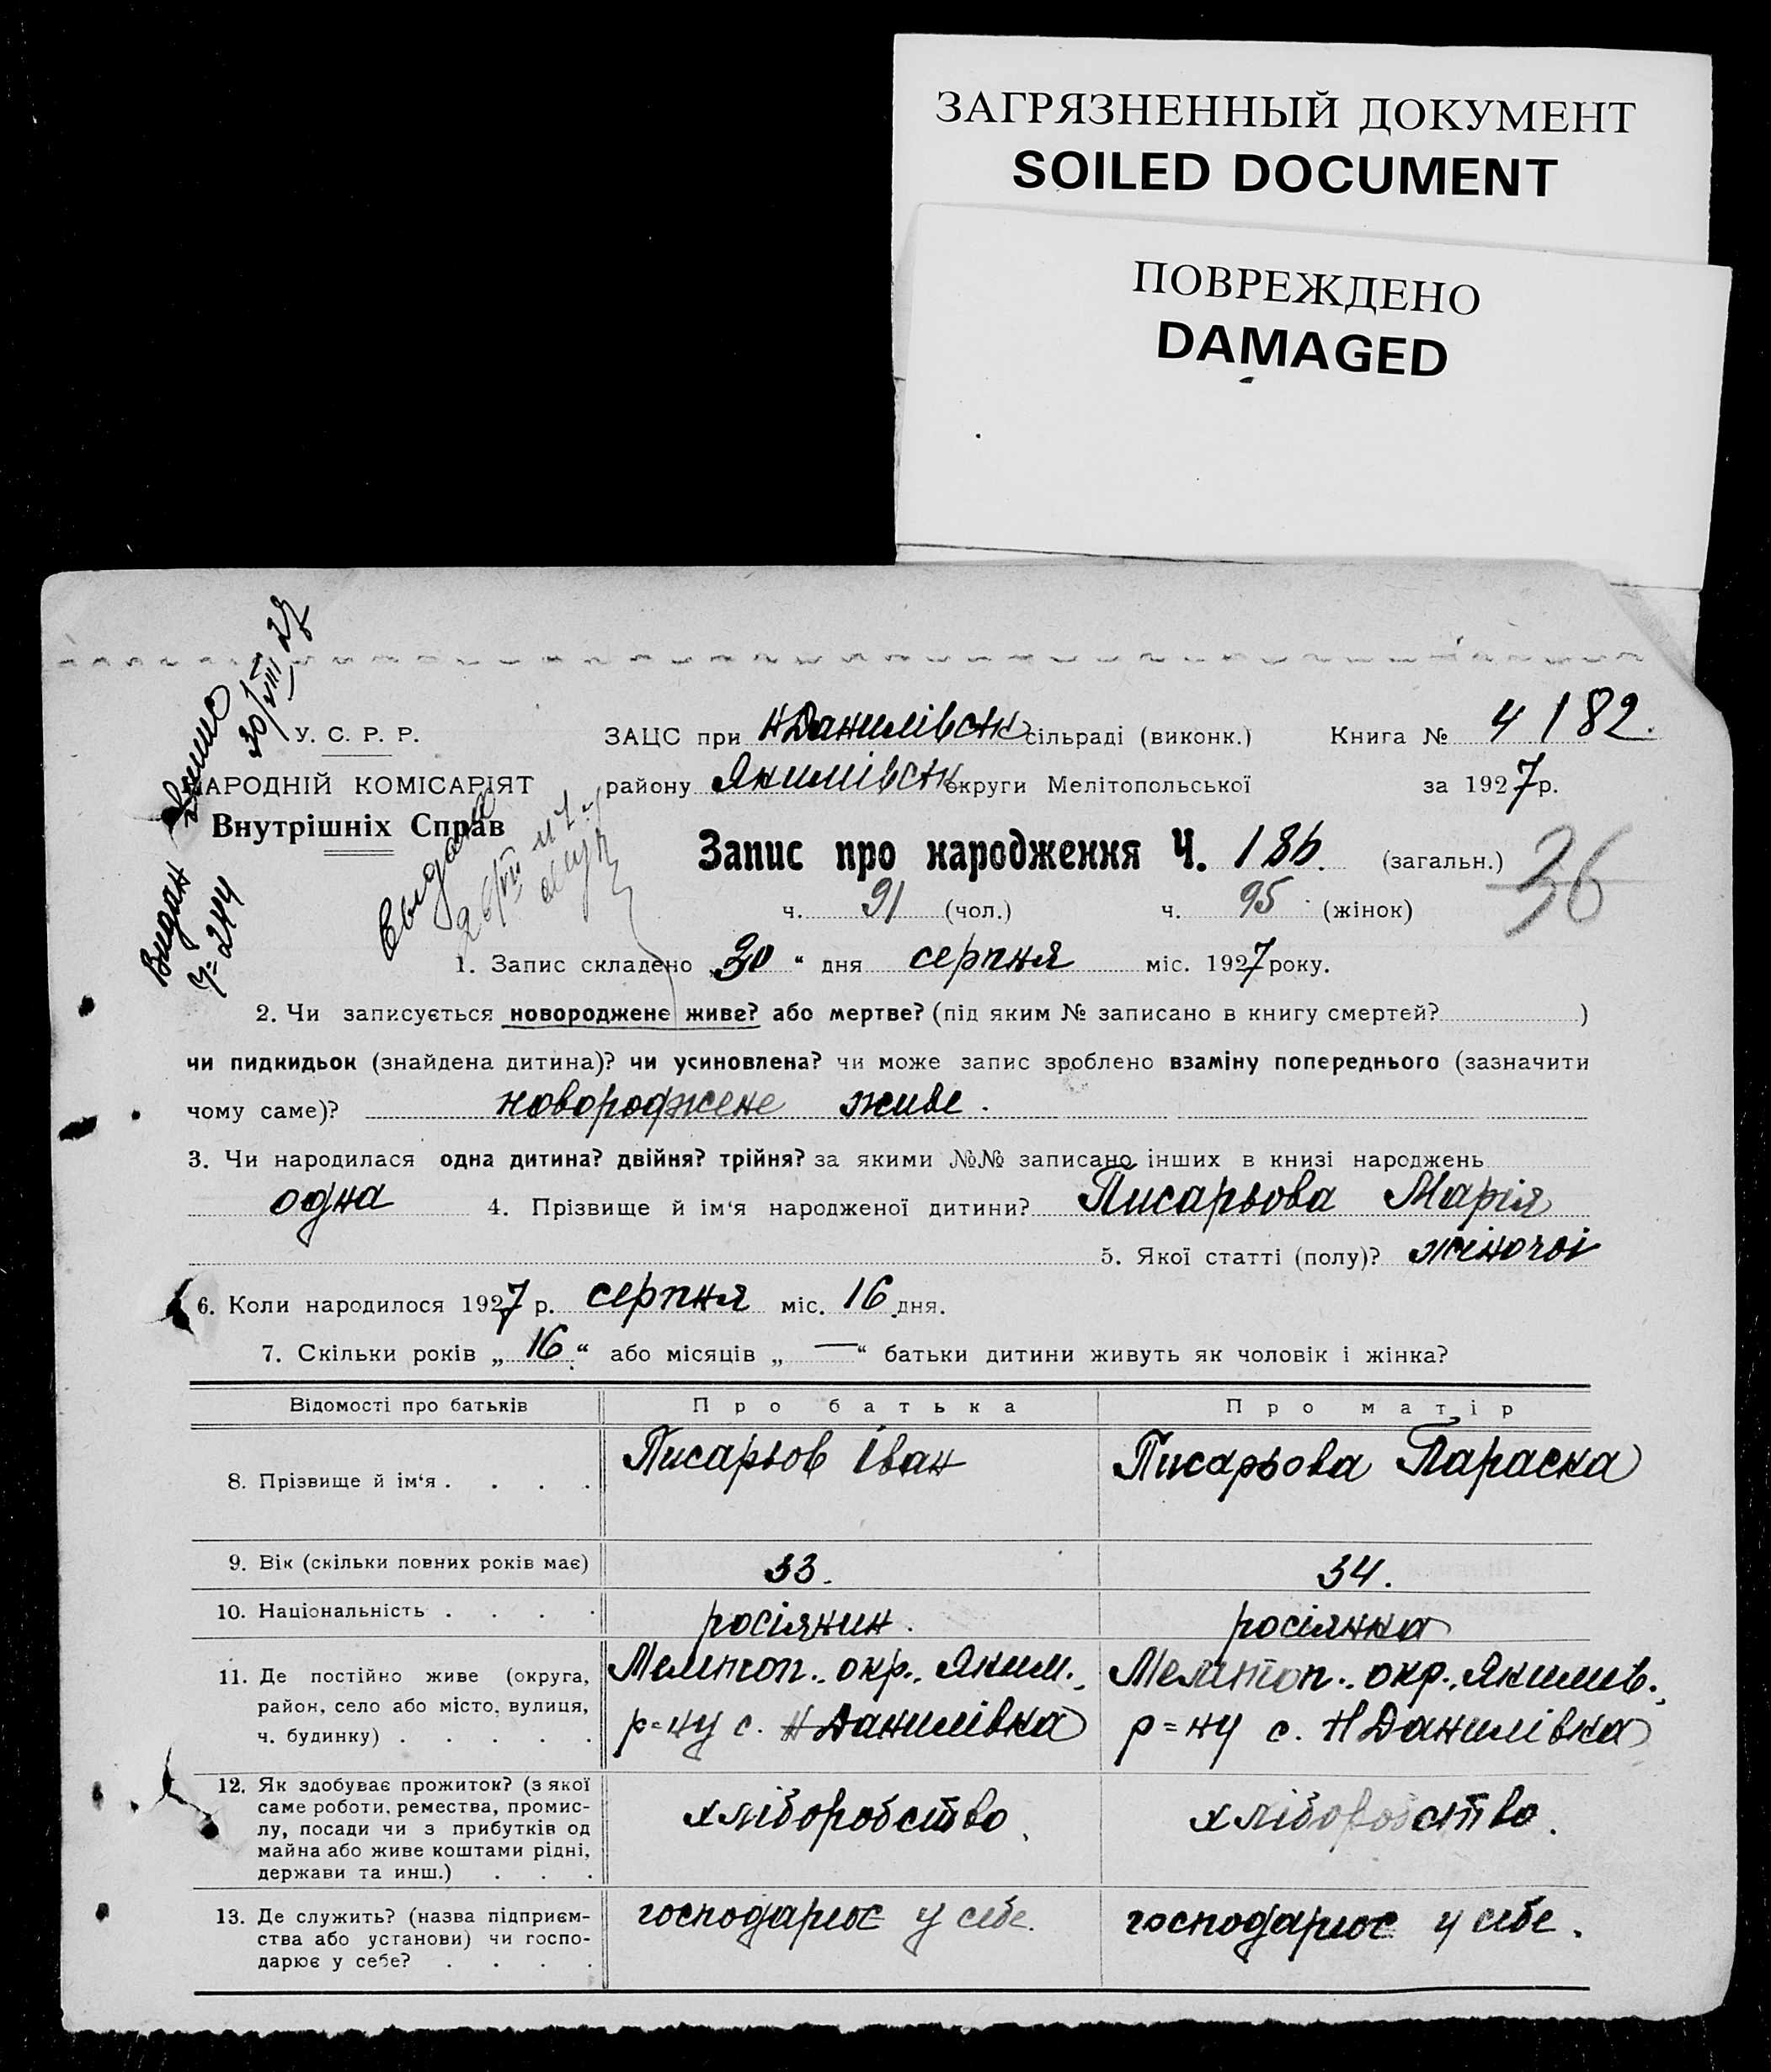 ЗАГРЯЗНЕННЫЙ ДОКУМЕНТ
SOILED DOCUMENT
ПОВРЕЖДЕНО
DAMAGED
30/VIII 27
Видан
ч= 244
видано
26/VII
У. С. Р. Р.
НАРОДНІЙ КОМІСАРІЯТ
Внутрішніх Справ
ЗАЦС при НДанилівськ сільраді (виконк.) Книга № 4 182.
району Якимівськ округи Мелітопольської за 1927 р.
Запис про народження Ч. 186. (загальн.) 36
ч. 91 (чол.) ч. 95 (жінок)
1. Запис складено „30“ дня серпня міс. 1927 року.
2. Чи записується новороджене живе? або мертве? (під яким № записано в книгу смертей? )
чи пидкидьок (знайдена дитина)? чи усиновлена? чи може запис зроблено взаміну попереднього (зазначити
чому саме)? новороджене живе.
3. Чи народилася одна дитина? двійня? трійня? за якими №№ записано інших в книзі народжень
одна 4. Прізвище й ім‘я народженої дитини? Писарьова Марія
5. Якої статті (полу)? жіночої
6. Коли народилося 1927 р. серпня міс. 16 дня.
7. Скільки років „16“ або місяців „—“ батьки дитини живуть як чоловік і жінка?
Відомості про батьків Про батька Про матір
8. Прізвище й ім‘я . . . . Писарьов Іван Писарьова Параска
9. Вік (скільки повних років має) 33. 34.
10. Національність . . . . росіянин. росіянка
11. Де постійно живе (округа, Мелітоп. окр., Яким., Мелітоп. окр., Якимів.,
район, село або місто, вулиця, р=ну с. НДанилівка р=ну с. НДанилівка
ч. будинку) . . . . .
12. Як здобуває прожиток? (з якої
саме роботи, ремества, промис-
лу, посади чи з прибутків од хліборобство. хліборобство.
майна або живе коштами рідні,
держави та инш.) . . .
13. Де служить? (назва підприєм- господарює у себе. господарює у себе.
ства або установи) чи госпо-
дарює у себе? . . . .